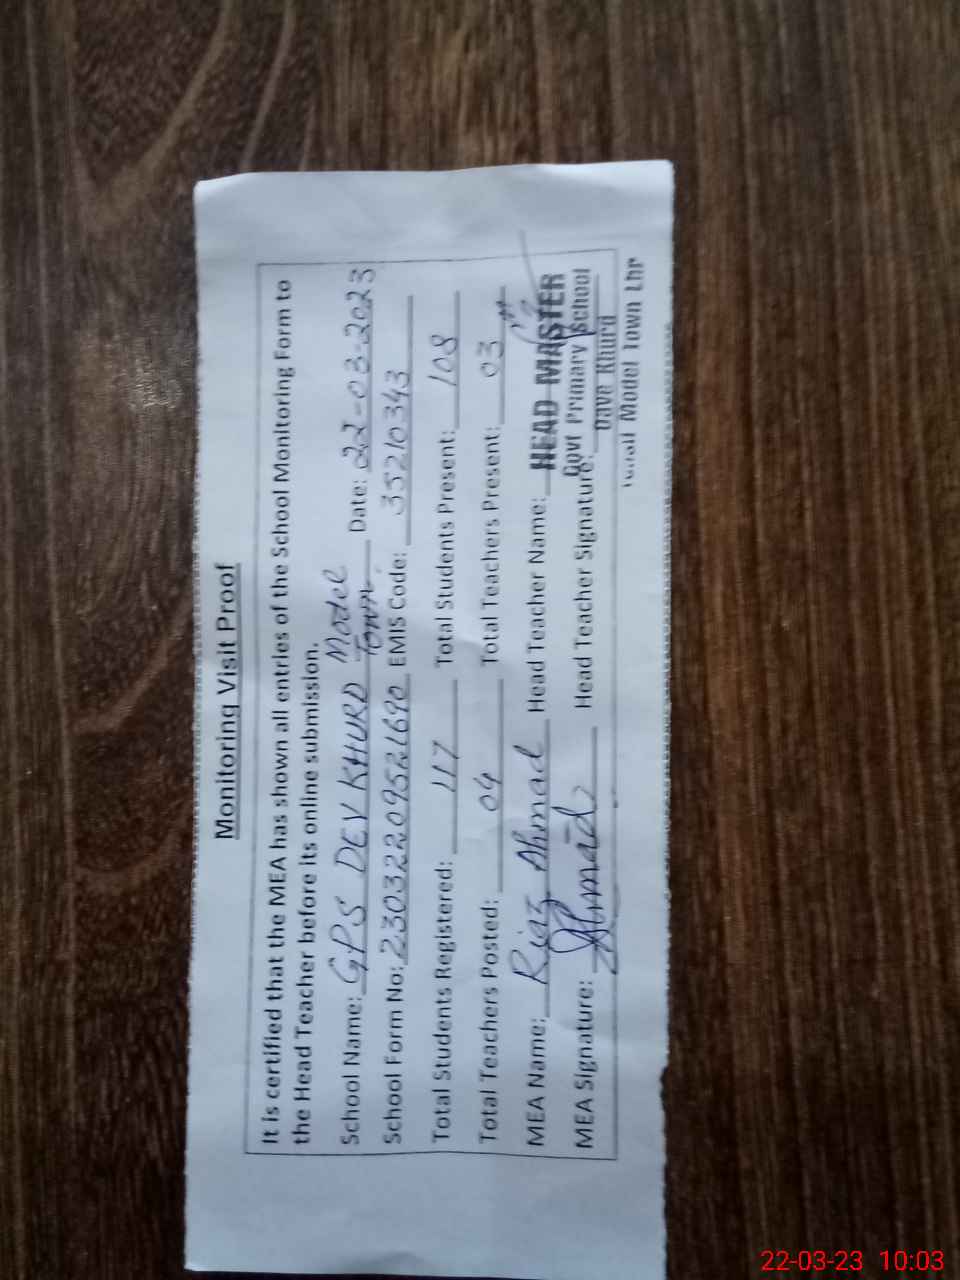 Monitoring Visit Proof
It is certified that the MEA has shown all entries of the School Monitoring Form to
the Head Teacher before its online submission.
School Name: GPS DEV KHURD Model Town. Date: 22-03-2023
School Form No: 23032209521690 EMIS Code: 35210343
Total Students Registered: 117 Total Students Present: 108
Total Teachers Posted: 04 Total Teachers Present: 03
MEA Name: Riaz Ahmad Head Teacher Name: HEAD MASTER
Govt Primary School
MEA Signature: Ahmad Head Teacher Signature: Dave Khurd
Model Town Lhr
22-03-23 10:03